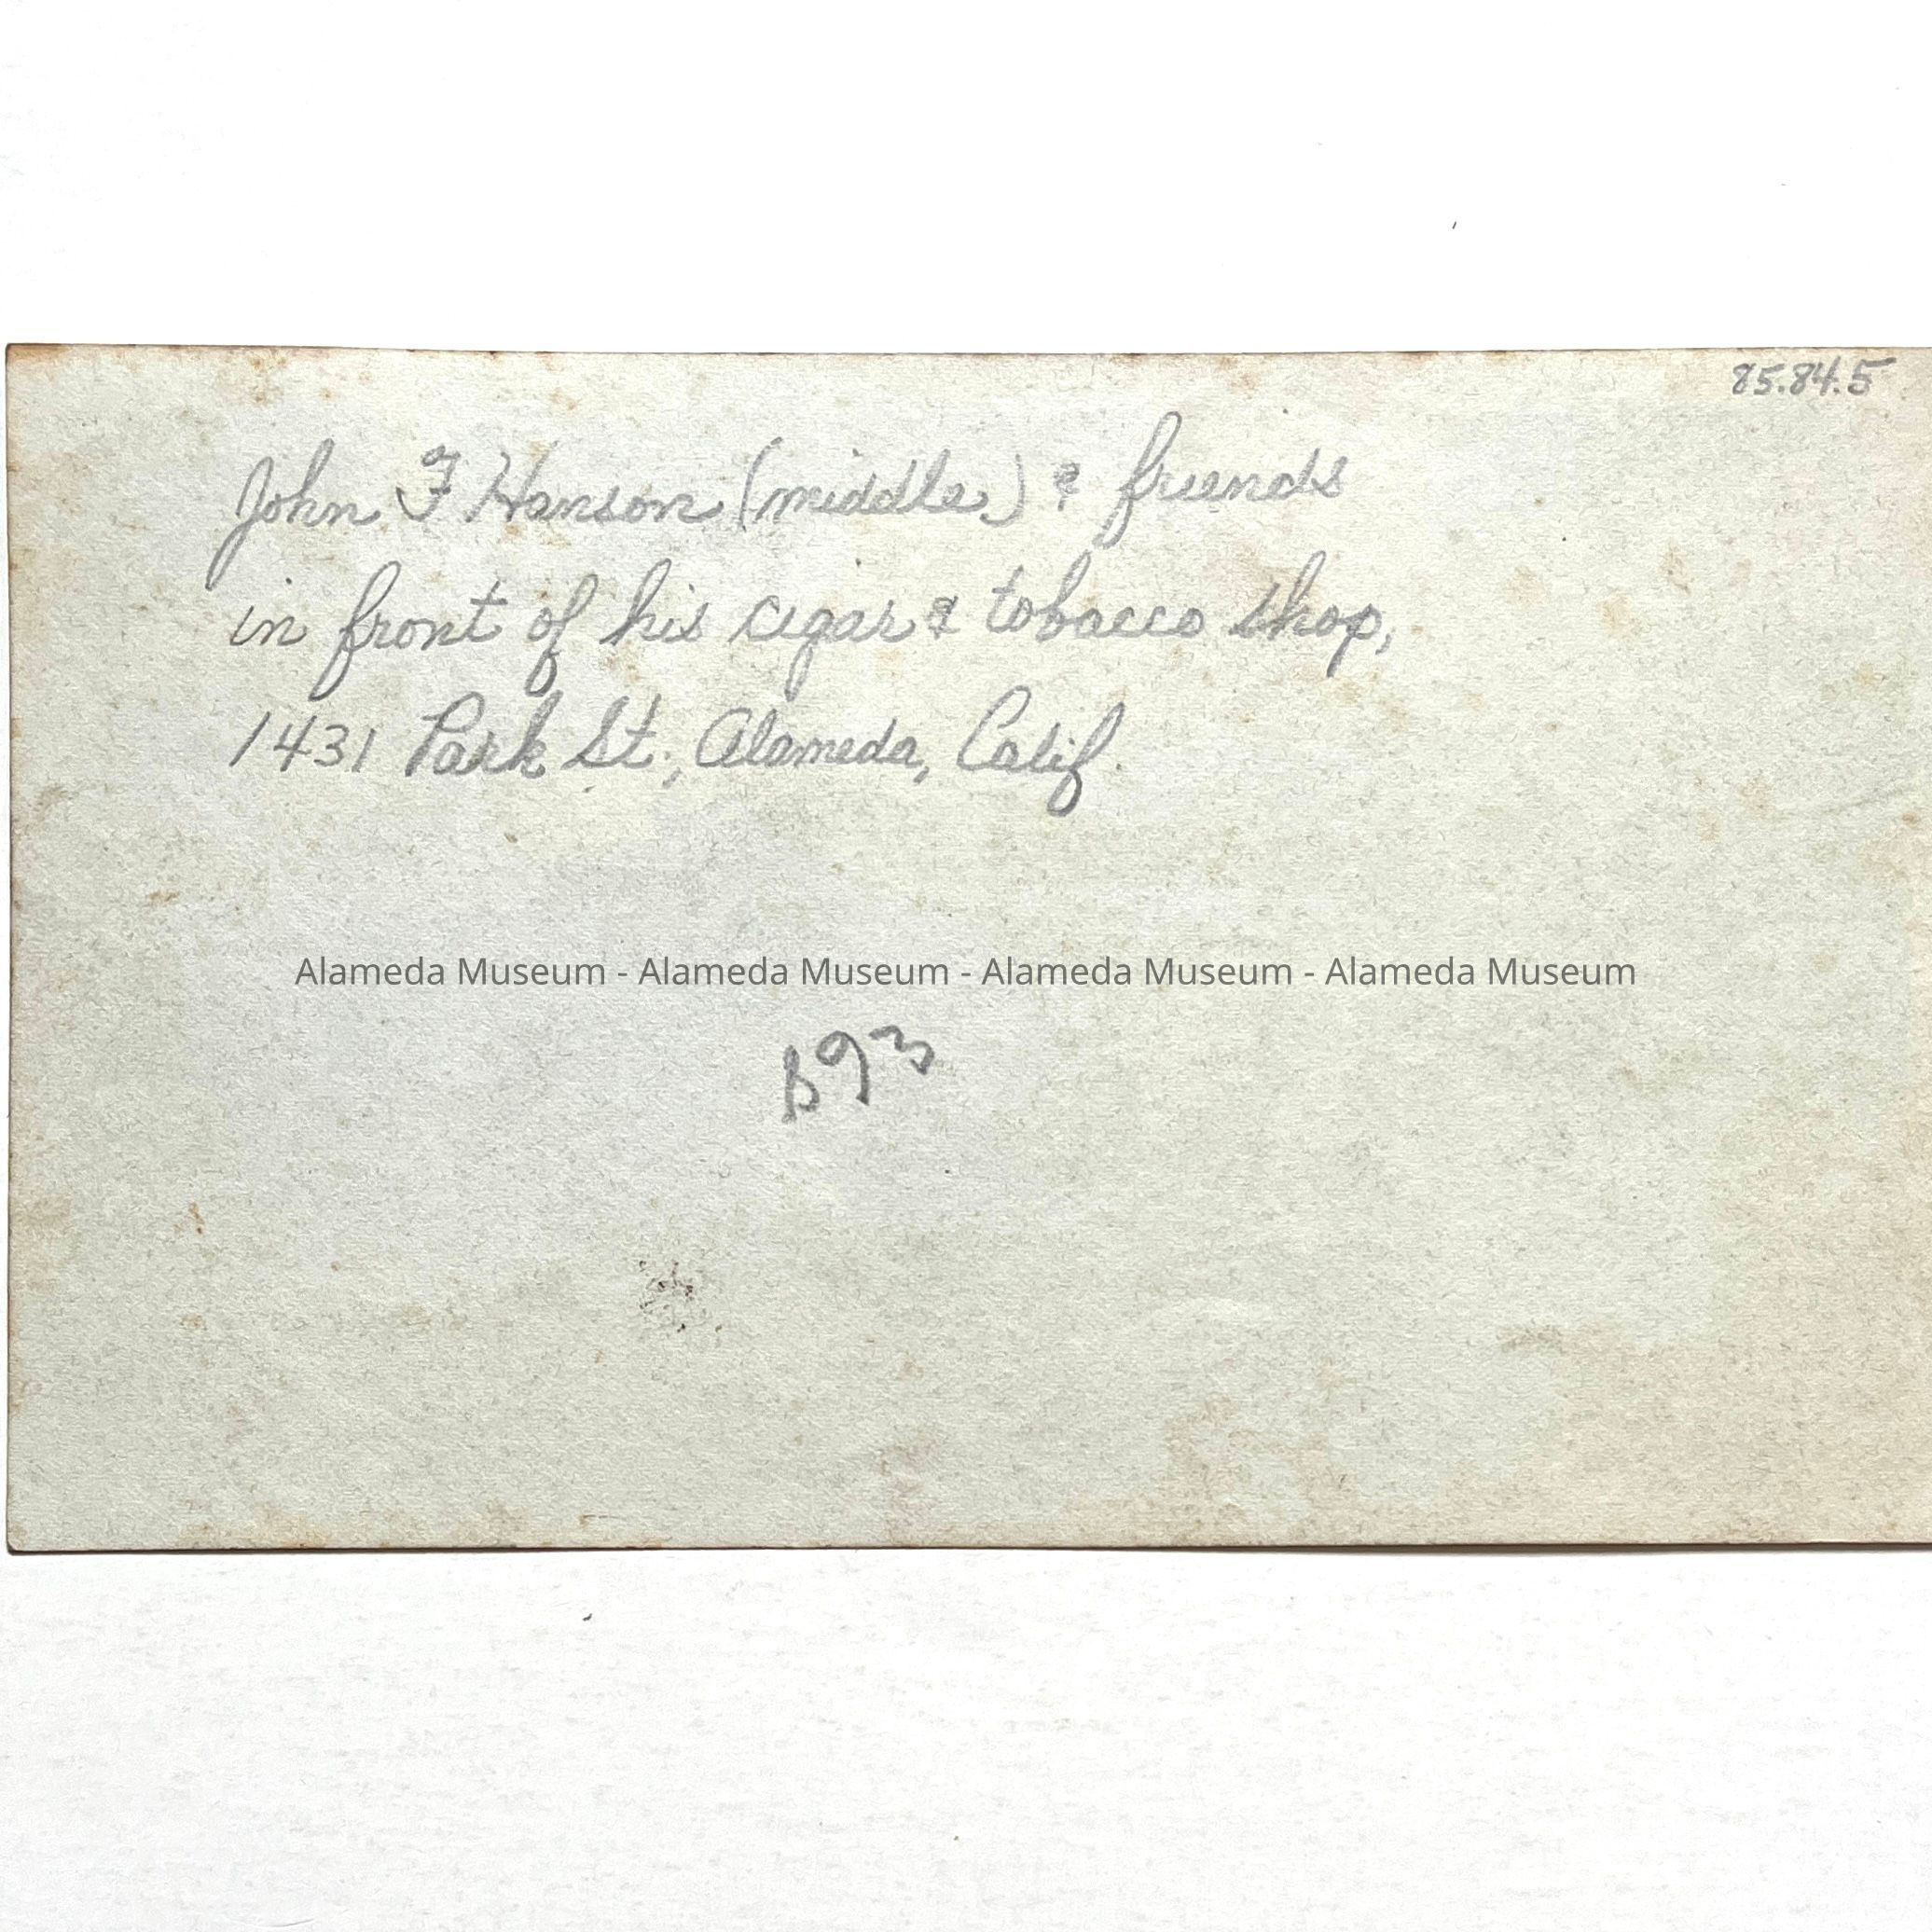 85.84.5
John F Hanson (middle) & friends
in front of his cigar & tobacco shop,
1431 Park St., Alameda, Calif.
Alameda Museum - Alameda Museum - Alameda Museum - Alameda Museum
B93